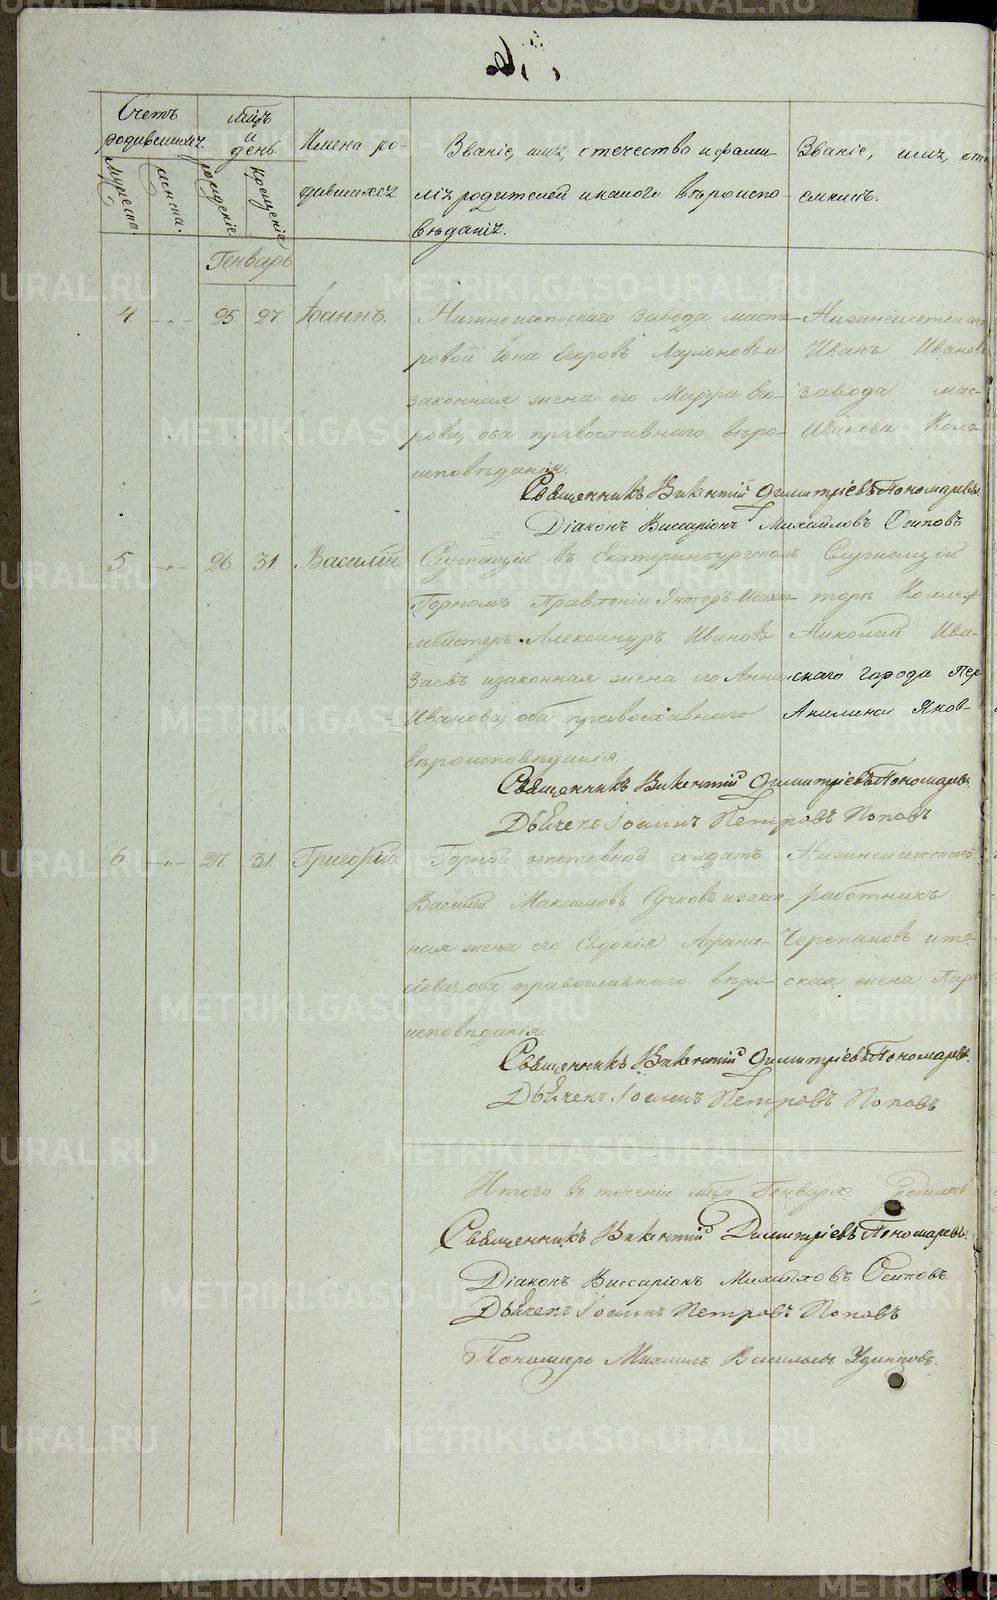 Счетъ родившихся.
Мужеска.
женска.
Мѣсяцъ и день.
рожденіе.
крещеніе
Имена ро-
дившихся.
Званіе, имя, отечество и фами-
лія родителей и какого вѣроиспо-
вѣданія.
Званіе, имя, оте
емниковъ.
Генварь
4 —„— 25 27 Іоаннъ.
Нижнеисетскаго завода масте-
ровой Іона Егоровъ Ларіоновъ и
законная жена его Марфа Его-
рова, оба православнаго вѣро-
исповѣданія.
Нижнеисетскаго
Иванъ Ивановъ
завода мас-
Иванова Коло
Священникъ Викентій Димитріевъ Пономаревъ
Діаконъ Виссаріонъ Михайловъ Осиповъ
5 —„— 26 31. Василій
Служащій въ Екатеринбургскомъ
Горномъ Правленіи Унтеръ-Шихт
мейстеръ Александръ Ивановъ
заевъ и законная жена его Анна
Иванова, оба православнаго
вѣроисповѣданія.
Служащій
торъ Коллеж
Николай Ива-
скаго города Пер
Акилина Яков-
Священникъ Викентій Димитріевъ Пономаревъ.
Дьячекъ Іоаннъ Петровъ Поповъ
6. —„— 27. 31. Григорій.
Горной отставной солдатъ
Василій Максимовъ и закон-
ная жена его Евдокія Афана-
сіева, оба православнаго вѣро-
исповѣданія.
Нижнеисетскаго
работникъ
Черепановъ и то-
ская жена Пар
Священникъ Викентій Димитріевъ Пономаревъ.
Дьячекъ Іоаннъ Петровъ Поповъ
Итого въ теченіи мѣсяца Генваря родилось
Священникъ Викентій Димитріевъ Пономаревъ.
Діаконъ Виссаріонъ Михайловъ Осиповъ.
Дьячекъ Іоаннъ Петровъ Поповъ
Пономарь Михаилъ Васильевъ Удинцовъ.
METRIKI.GASO-URAL.RU